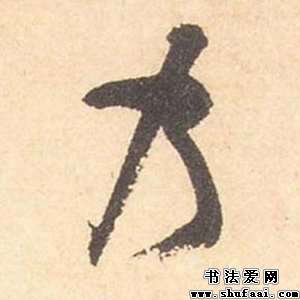 方
书法爱网
www.shufaai.com